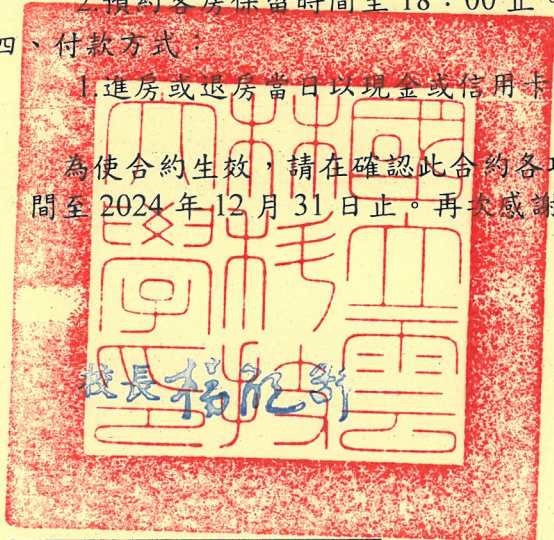 2.預約客房保留時間至 18：00 止。
四、付款方式：
1.進房或退房當日以現金或信用卡
為使合約生效，請在確認此合約各項
間至 2024 年 12 月 31 日止。再次感謝
國立雲
林科技
大學印
校長 楊能舒